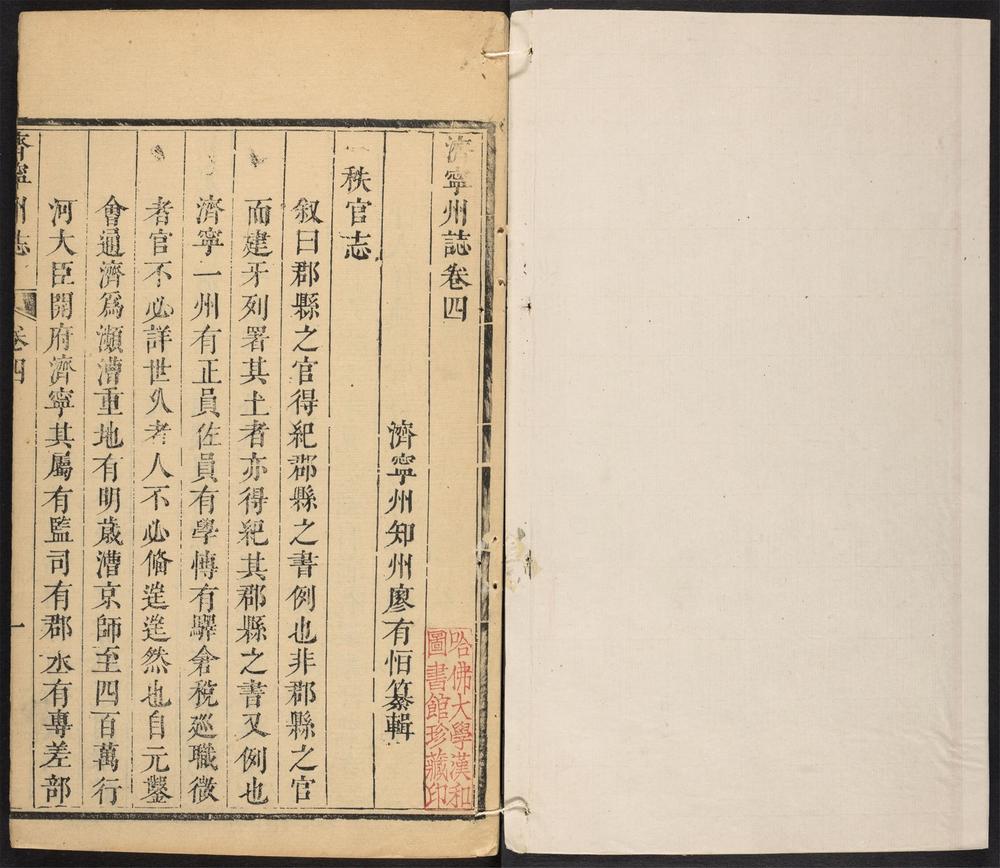 濟寧州誌卷四
濟寧州知州廖有恒纂輯
秩官志
叙曰郡縣之官得紀郡縣之書例也非郡縣之官
而建牙列署其土者亦得紀其郡縣之書又例也
濟寧一州有正員佐員有學慱有驛倉稅廵職微
者官不必詳世久者人不必偹逆逆然也自元鑿
會通濟爲瀕漕重地有明歲漕京師至四百萬行
河大臣開府濟寧其屬有監司有郡丞有專差部
濟寧州志
卷四
一
哈佛大學漢和
圖書館珍藏印